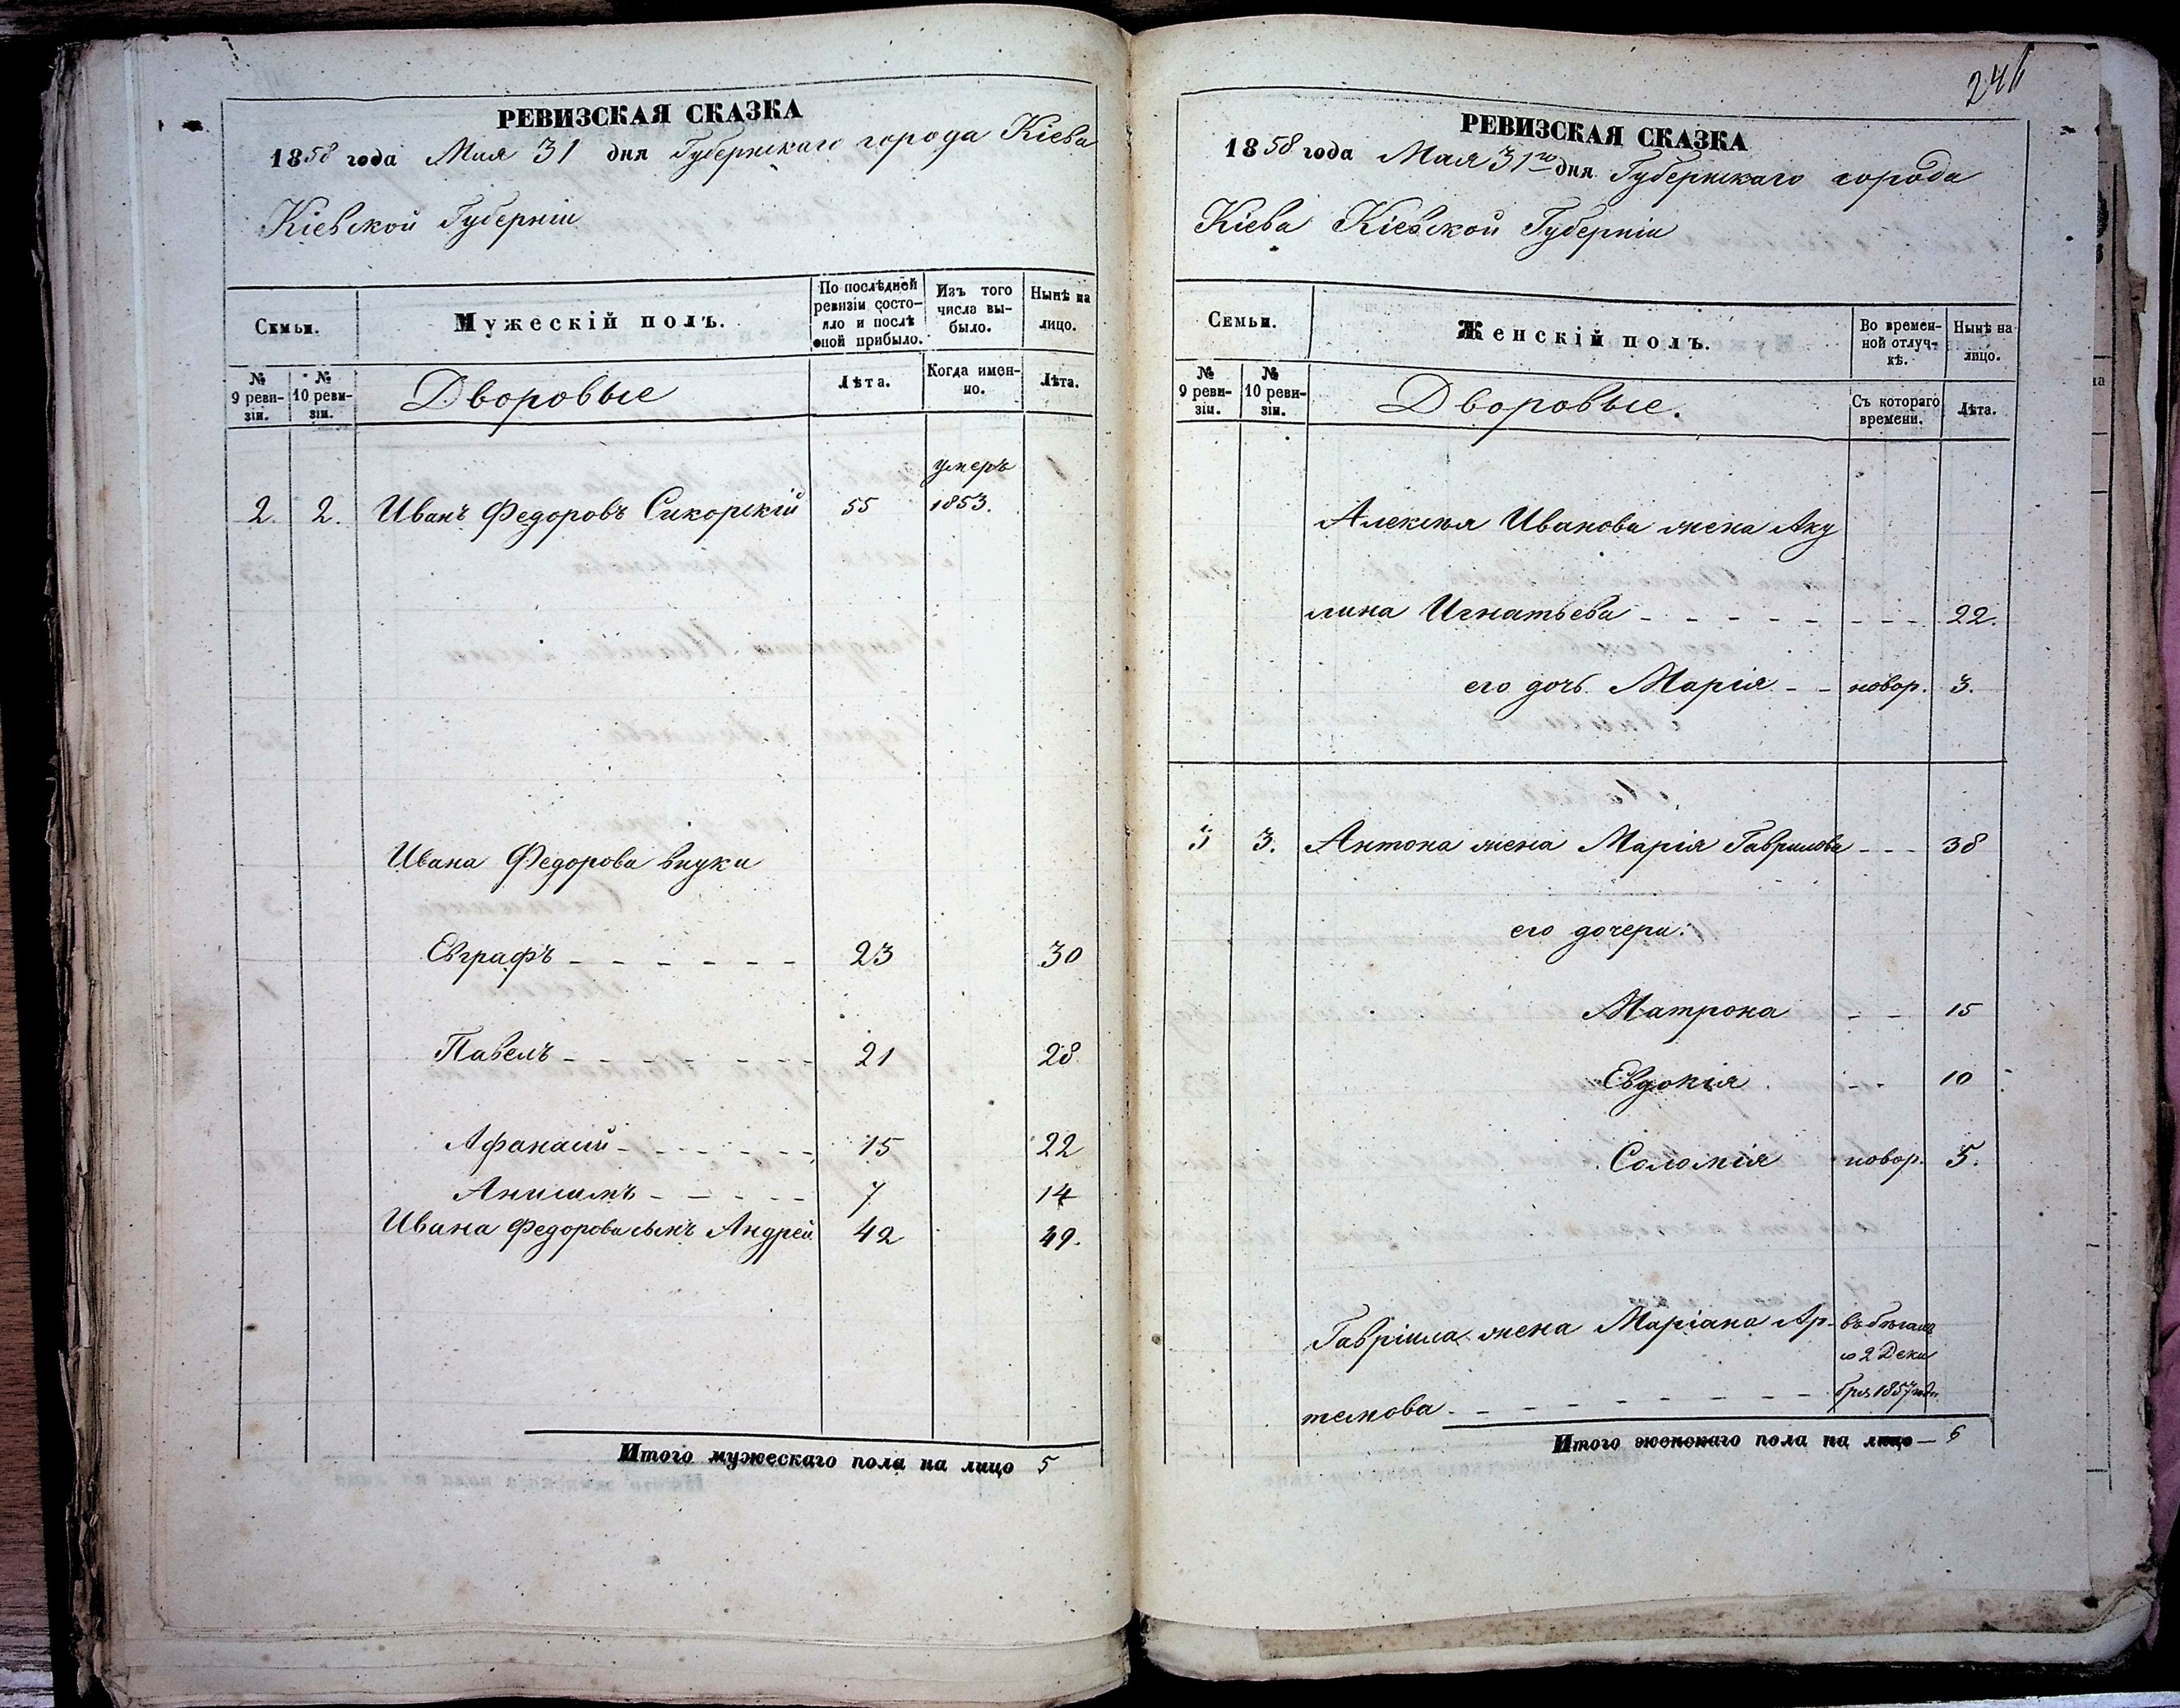 РЕВИЗСКАЯ СКАЗКА
1858 года Мая 31 дня Губернскаго города Кіева
Кіевской Губерніи
Семьи.
Мужескій полъ.
По послѣдней ревизіи состояло и послѣ оной прибыло.
Изъ того числа выбыло.
Нынѣ на лицо.
№ 9 ревизіи.
№ 10 ревизіи.
Дворовые
Лѣта.
Когда именно.
Лѣта.
умеръ
2. 2. Иванъ Федоровъ Сикорскій 55 1853.
Ивана Федорова внуки
Евграфъ - - - - - - 23 30
Павелъ - - - - - - - 21 28
Афанасій - - - - - - 15 22
Анисимъ - - - - - 7 14
Ивана Федорова сынъ Андрей 42 49.
Итого мужескаго пола на лицо 5
246
РЕВИЗСКАЯ СКАЗКА
1858 года Мая 31го дня Губернскаго города
Кіева Кіевской Губерніи
Семьи.
Женскій полъ.
Во временной отлучкѣ.
Нынѣ на лицо.
№ 9 ревизіи.
№ 10 ревизіи.
Дворовые.
Съ котораго времени.
Лѣта.
Алексѣя Иванова жена Аку
лина Игнатьева - - - - - - - - 22.
его дочь Марія - - новор. 3.
3 3. Антона жена Марія Гаврилова - - - 38
его дочери:
Матрона - - 15
Евдокія - - 10
Соломія новор. 5.
Гавріила жена Маріана Ар- въ бѣгахъ
со 2 Дека
темова - - - - - - - - бря 1857 года
Итого женскаго пола на лицо - 6